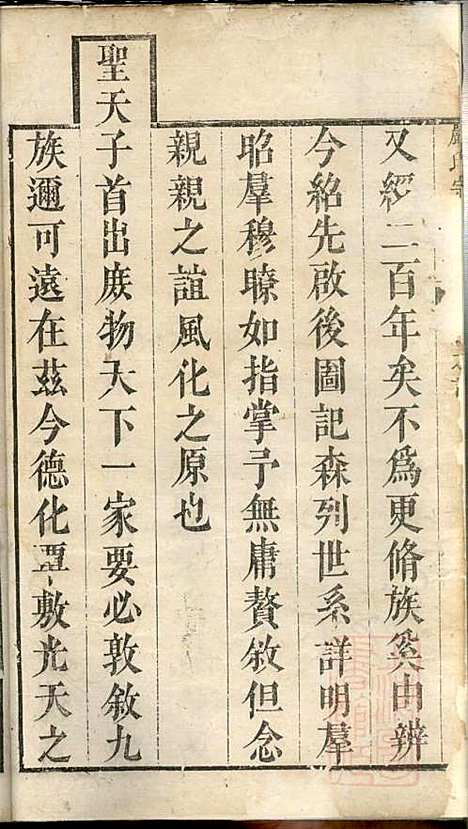 又經二百年矣不為更脩族奚由辨
今紹先啟後圖記森列世系詳明羣
昭羣穆瞭如指掌予無庸贅敘但念
親親之誼風化之原也
聖天子首出庶物天下一家要必敦敘九
族邇可遠在茲今德化覃敷光天之